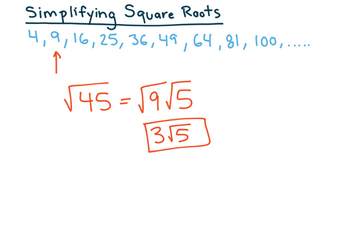 Simplifying Square Roots
4, 9, 16, 25, 36, 49, 64, 81, 100, .....
√45 = √9√5
3√5